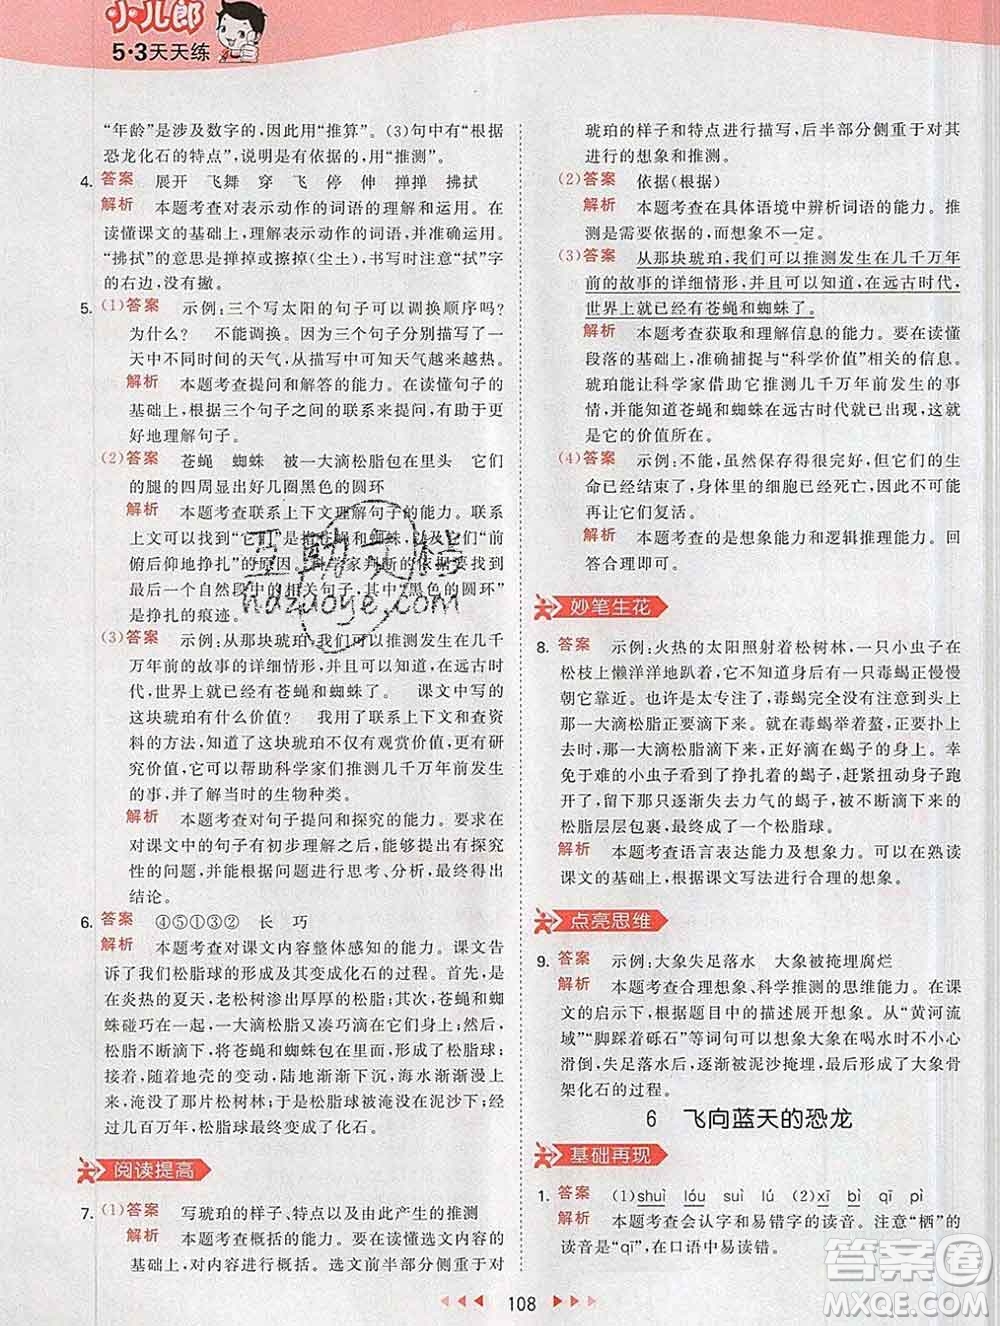 小儿郎
5·3天天练
“年龄”是涉及数字的，因此用“推算”。(3)句中有“根据
恐龙化石的特点”，说明是有依据的，用“推测”。
4. 答案 展开 飞舞 穿 飞 停 伸 掸掸 拂拭
解析 本题考查对表示动作的词语的理解和运用。在
读懂课文的基础上，理解表示动作的词语，并准确运用。
“拂拭”的意思是掸掉或擦掉(尘土)，书写时注意“拭”字
的右边，没有撇。
5. (1)答案 示例：三个写太阳的句子可以调换顺序吗？
为什么？ 不能调换。因为三个句子分别描写了一
天中不同时间的天气，从描写中可知天气越来越热。
解析 本题考查提问和解答的能力。在读懂句子的
基础上，根据三个句子之间的联系来提问，有助于更
好地理解句子。
(2)答案 苍蝇 蜘蛛 被一大滴松脂包在里头 它们
的腿的四周显出好几圈黑色的圆环
解析 本题考查联系上下文理解句子的能力。联系
上文可以找到“它们”是指苍蝇和蜘蛛，以及它们“前
俯后仰地挣扎”的原因。科学家判断的依据需要联系
后一个自然段中的相关句子，并理解“黑色的圆环”
是挣扎的痕迹。
(3)答案 示例：从那块琥珀，我们可以推测发生在几千
万年前的故事的详细情形，并且可以知道，在远古时
代，世界上就已经有苍蝇和蜘蛛了。 课文中写的
这块琥珀有什么价值？ 我用了联系上下文和查资
料的方法，知道了这块琥珀不仅有观赏价值，更重要
的是它可以帮助科学家们推测几千万年前发生的
的事，并了解当时的生物种类。
解析 本题考查对句子提问和探究的能力。要求在
对课文中的句子有初步理解之后，提出具有探究
性的问题，并针对问题进行思考、分析，最后得出
结论。
6. 答案 ④⑤①③② 长 巧
解析 本题考查对课文内容整体感知的能力。课文告
诉了我们松脂球的形成及其变成化石的过程。首先，是
在炎热的夏天，老松树渗出厚厚的松脂；然后，苍蝇和蜘
蛛碰巧在一起，一大滴松脂又凑巧滴在它们身上；然后，
松脂不断滴下，将苍蝇和蜘蛛包在里面，形成了松脂球；
接着，随着地壳的变动，陆地渐渐下沉，海水渐渐漫上
来，淹没了那片松树林，松脂球也淹没在泥沙下；最后经
过几百万年，松脂球最终变成了化石。
阅读提高
7. (1)答案 写琥珀的样子、特点以及由此产生的推测
解析 本题考查概括的能力。要在读懂选文的基础
上，对内容进行概括。选文前半部分侧重于对
琥珀的样子和特点进行描写，后半部分侧重于有依
据的想象和推测。
(2)答案 依据(根据)
解析 本题考查在具体语境中辨析词语的能力。推
测是需要有依据的，而想象不一定。
(3)答案 从那块琥珀，我们可以推测发生在几千万年
前的故事的详细情形，并且可以知道，在远古时代，
世界上就已经有苍蝇和蜘蛛了。
解析 本题考查获取和理解信息的能力。要在读懂
段落的基础上，准确捕捉与“科学价值”相关的信息。
琥珀能让科学家借助它推测几千万年前发生的事
情，并能知道苍蝇和蜘蛛在远古时代就已出现，这
是它的价值所在。
(4)答案 示例：不能，虽然保存得很完好，但它们的生
命已经死亡了，身体里的细胞已经死亡，不可能
再让它们复活。
解析 本题考查的是想象能力和逻辑推理能力。回
答合理即可。
妙笔生花
8. 答案 示例：火热的太阳照射着松树林，一只小虫子在
松枝上懒洋洋地趴着，它没有发现一只毒蝎正慢慢
朝它靠近。也许是太专注了，毒蝎完全没有注意到头上
那一大滴松脂正要滴下来。正当毒蝎举着螯，就要
扑上去时，那一大滴松脂正好滴在蝎子的身上。幸
免于难的小虫子看到了挣扎的蝎子，赶紧逃走了。
松脂继续滴下来，那只逐渐失去力气的蝎子，不断地被
松脂层层包裹，最终成了一个松脂球。
解析 本题考查语言表达能力及想象力。可以在熟读
课文的基础上，根据课文写法进行合理的想象。
点亮思维
9. 答案 示例：大象失足落水 大象被掩埋腐烂
解析 本题考查合理想象、科学推测的思维能力。在课
文的启示下，根据题目中的描述展开想象。从“黄河流
域”“脚踩着砾石”等词句可以想象大象在喝水时不小心
滑倒，失足落水后，逐渐被泥沙掩埋，最终形成了大象骨
架化石的过程。
6 飞向蓝天的恐龙
基础再现
1. 答案 (1)shuì lóu suì lú (2)xī bì qī pì
解析 本题考查会认字和易错字的读音。注意“栖”的
读音是“qī”，在口语中易读错。
108
互助文档
hdzdoye.com
答案圈
MXQE.COM